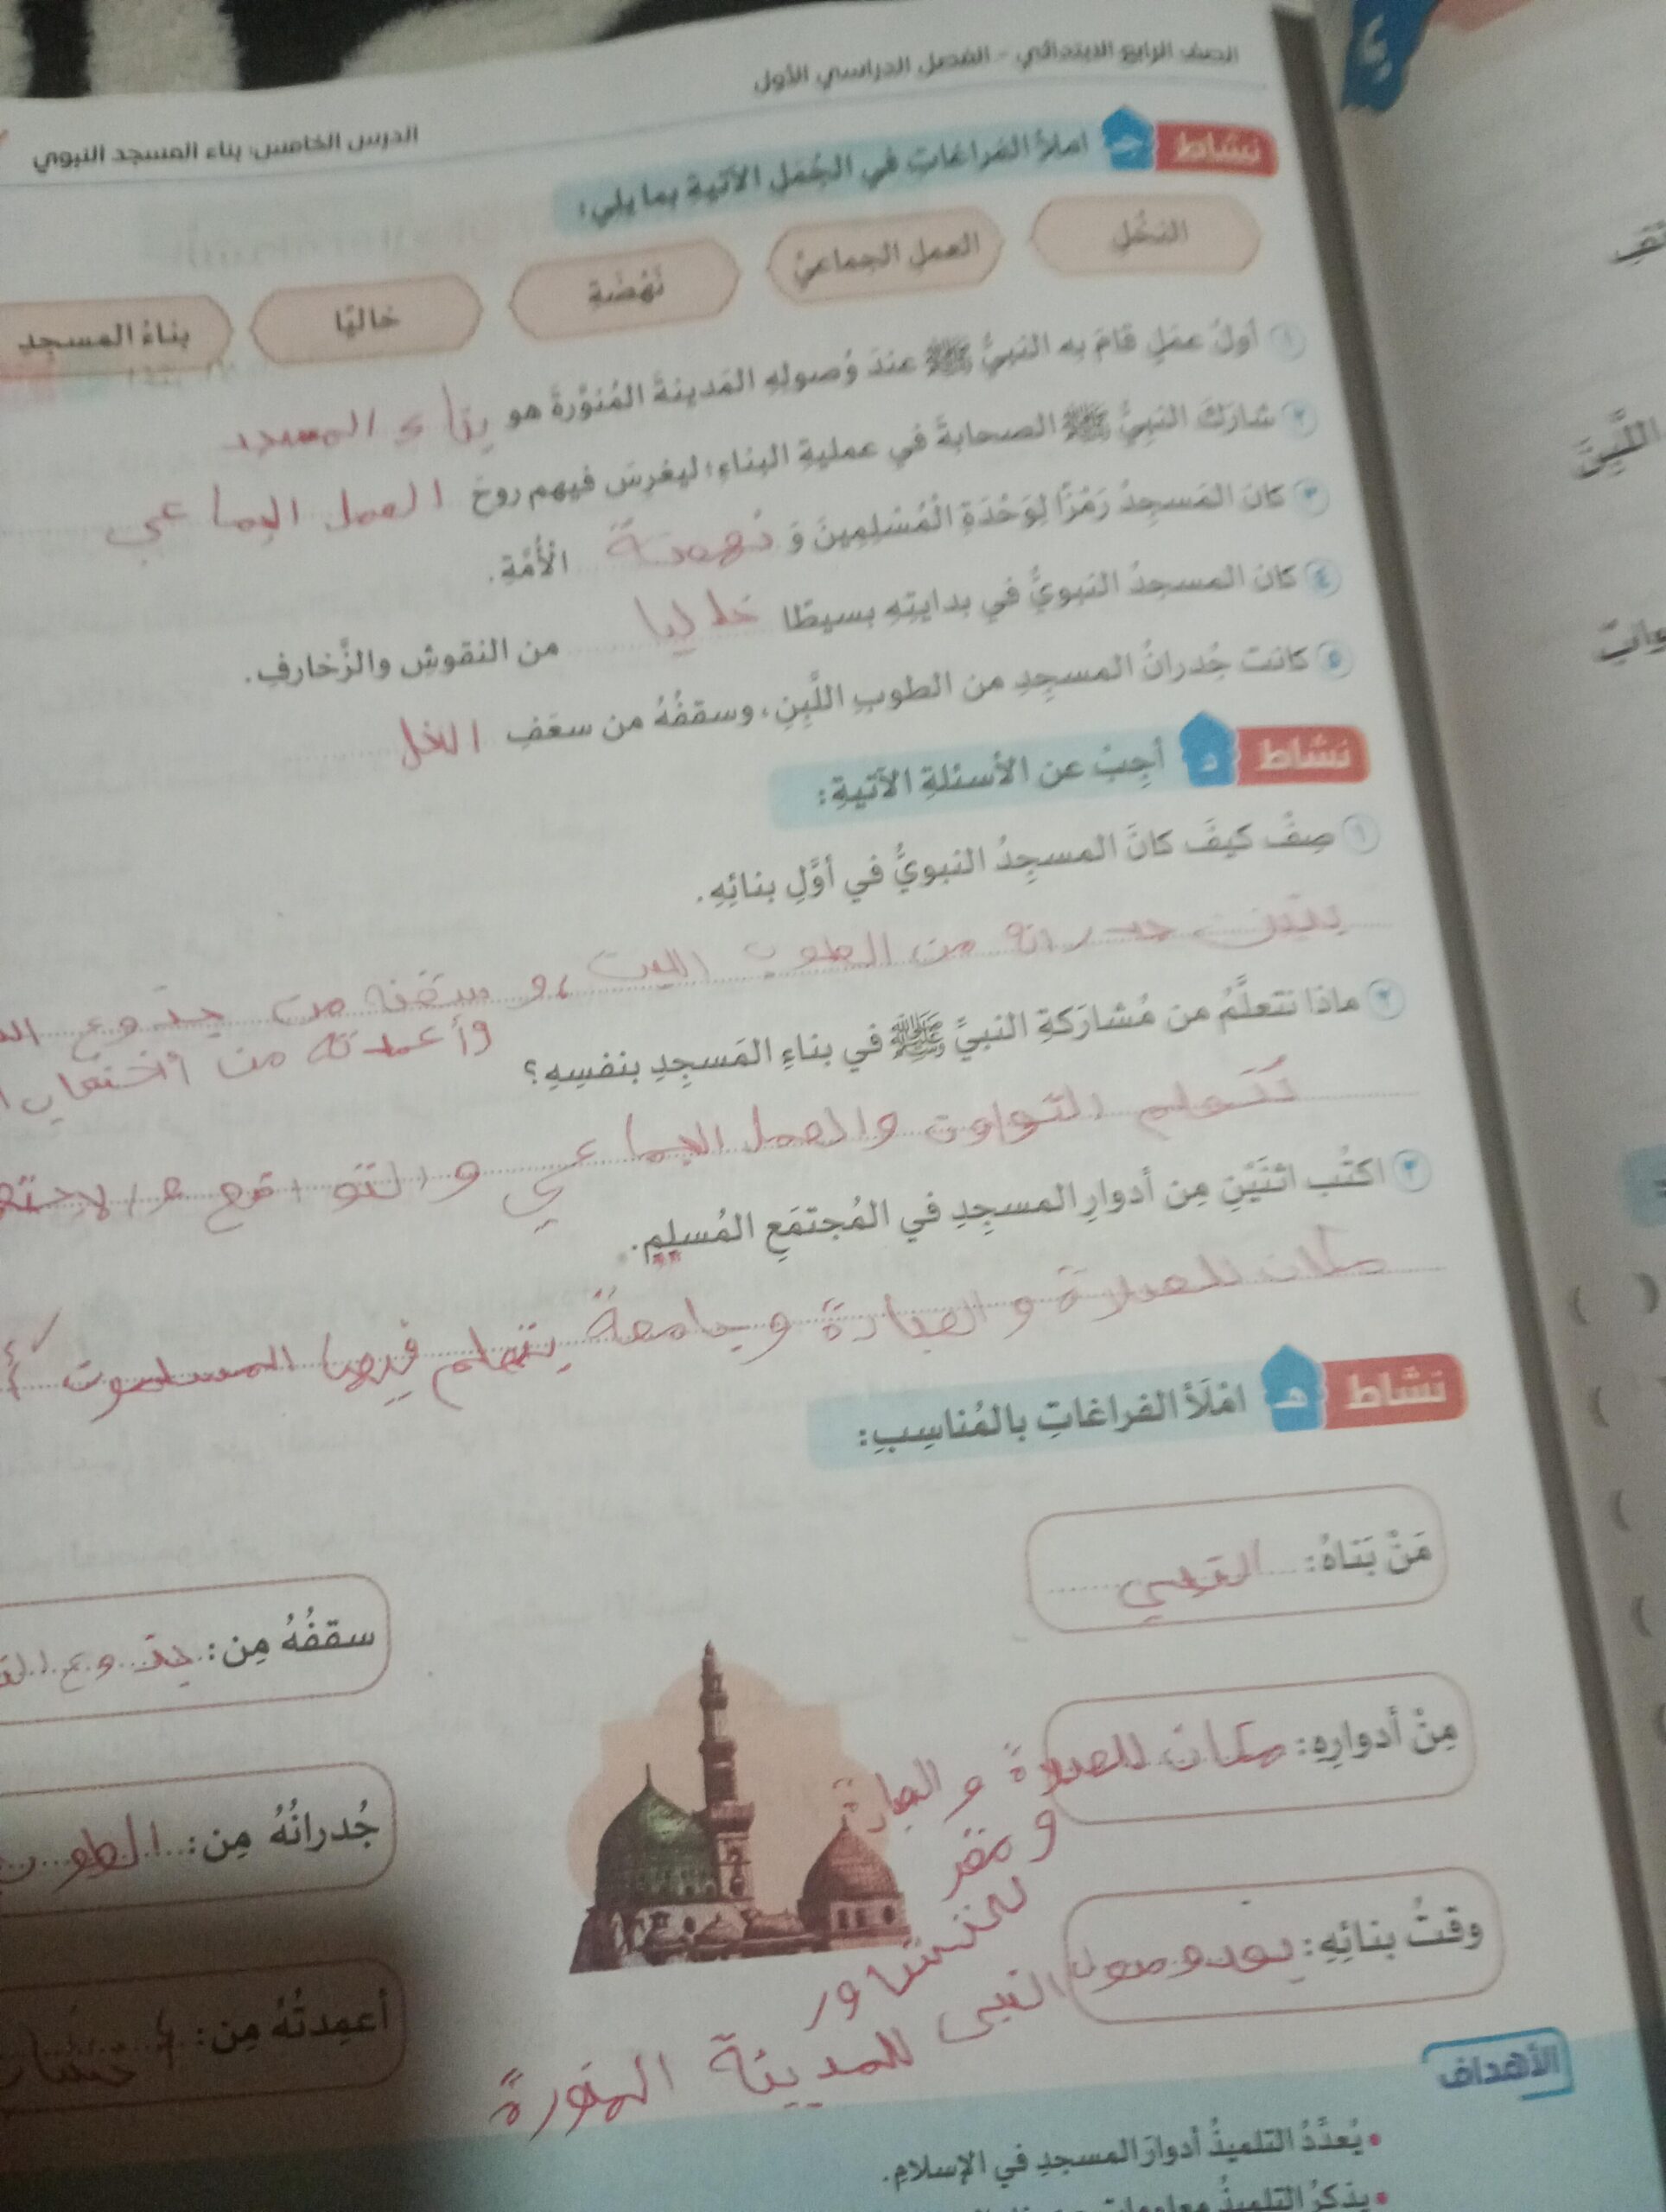 الصف الرابع الابتدائي - الفصل الدراسي الأول
الدرس الخامس: بناء المسجد النبوي
نشاط ج املأ الفراغات في الجُمَل الآتية بما يلي:
النخْلِ العملِ الجماعيِّ نَهْضَةِ خاليًا بناءُ المسجِدِ
١ أولُ عمَلٍ قامَ بِه النبيُّ ﷺ عندَ وُصولِهِ المَدينةَ المُنوَّرةَ هو بناء المسجد
٢ شارَكَ النبيُّ ﷺ الصحابةَ في عمليةِ البِناءِ؛ ليغرِسَ فيهم روحَ العمل الجماعي
٣ كانَ المَسجِدُ رَمْزًا لِوَحْدَةِ الْمُسْلِمِينَ وَ نهضة الْأُمَّةِ.
٤ كانَ المسجِدُ النبويُّ في بدايتِهِ بسيطًا خاليا من النقوشِ والزَّخارفِ.
٥ كانت جُدرانُ المسجِدِ من الطوبِ اللَّبِنِ، وسقفُهُ من سعَفِ النخل
نشاط د أَجِبْ عن الأسئلةِ الآتيةِ:
١ صِفْ كيفَ كانَ المسجِدُ النبويُّ في أوَّلِ بنائِهِ.
جدرانه من الطوب اللبن، وسقفه من جذوع
وأعمدته من
٢ ماذا نتعلَّمُ من مُشارَكةِ النبيِّ ﷺ في بناءِ المَسجِدِ بنفسِهِ؟
نتعلم التعاون والعمل الجماعي والتواضع
٣ اكتُب اثنَيْنِ مِن أدوارِ المسجِدِ في المُجتمَعِ المُسلِمِ.
مكان للصلاة والعبادة وجامعة يتعلم فيها المسلمون
نشاط هـ امْلَأ الفراغاتِ بالمُناسِبِ:
مَنْ بَنَاهُ: النبي
سقفُهُ مِن: جذوع
مِنْ أدوارِهِ: مكان للصلاة والعبادة
ومقر
للتشاور
جُدرانُهُ مِن: الطوب
وقتُ بنائِهِ: بعد وصول النبي للمدينة المنورة
أعمِدتُهُ مِن:
الأهداف
• يُعدِّدُ التلميذُ أدوارَ المسجدِ في الإسلامِ.
• يذكرُ التلميذُ معلومات